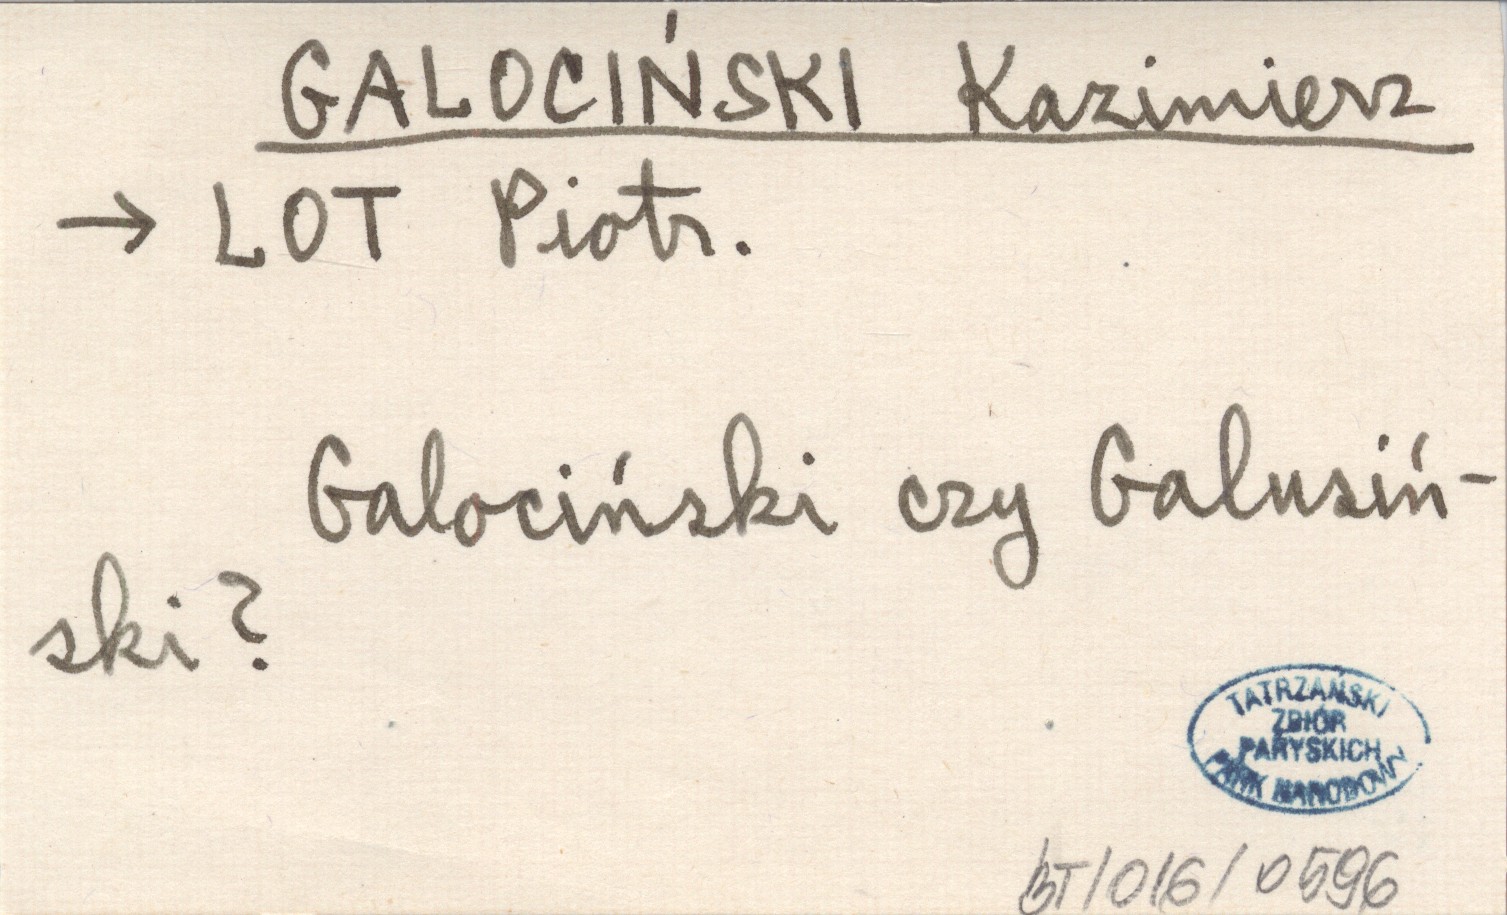 GALOCIŃSKI Kazimierz
→ LOT Piotr.
Galociński czy Galusiń-
ski?
TATRZAŃSKI
ZBIÓR
PARYSKICH
PARK NARODOWY
BT/016/0596